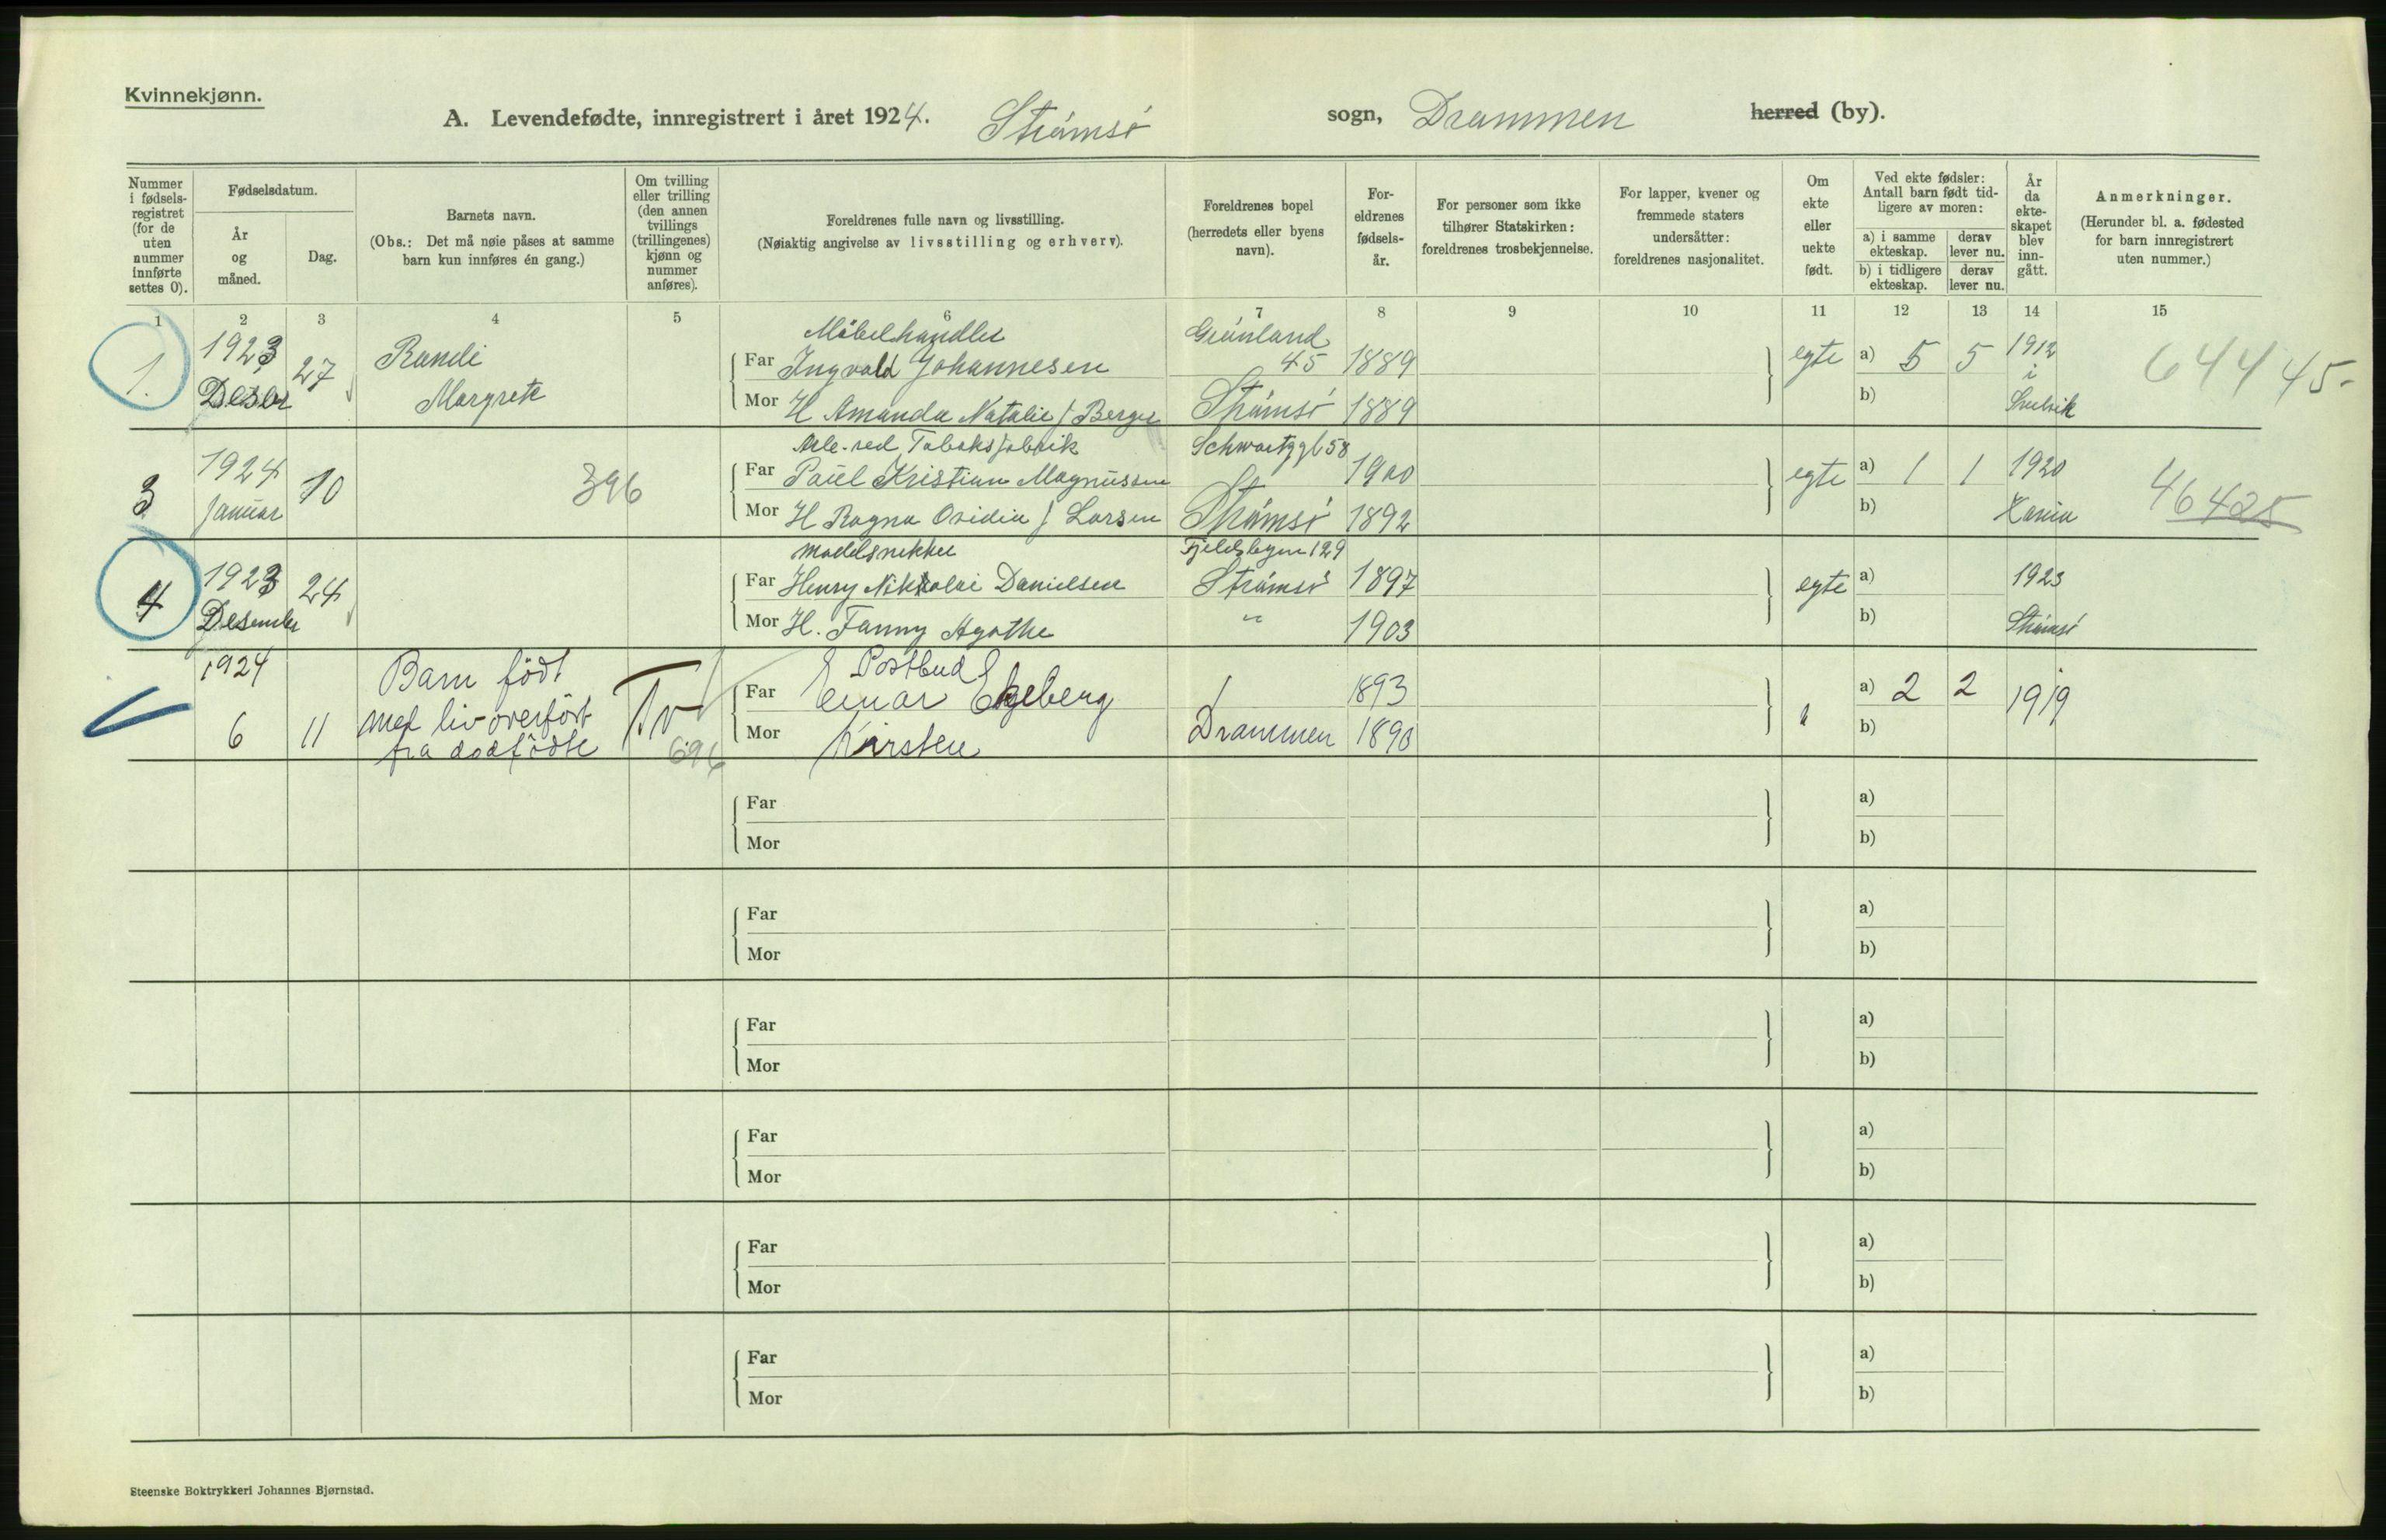 Kvinnekjønn.
A. Levendefødte, innregistrert i året 1924. Strømsø sogn, Drammen herred (by).
Nummer i fødsels-registret (for de uten nummer innførte settes 0).
Fødselsdatum.
År og måned.
Dag.
Barnets navn.
(Obs.: Det må nøie påses at samme barn kun innføres én gang.)
Om tvilling eller trilling (den annen tvillings (trillingenes) kjønn og nummer anføres).
Foreldrenes fulle navn og livsstilling.
(Nøiaktig angivelse av livsstilling og erhverv).
Foreldrenes bopel (herredets eller byens navn).
For-eldrenes fødsels-år.
For personer som ikke tilhører Statskirken: foreldrenes trosbekjennelse.
For lapper, kvener og fremmede staters undersåtter: foreldrenes nasjonalitet.
Om ekte eller uekte født.
Ved ekte fødsler: Antall barn født tid-ligere av moren:
a) i samme ekteskap. derav lever nu.
b) i tidligere ekteskap. derav lever nu.
År da ekte-skapet blev inn-gått.
Anmerkninger.
(Herunder bl. a. fødested for barn innregistrert uten nummer.)
1 2 3 4 5 6 7 8 9 10 11 12 13 14 15
Møbelhandler Grønland
1. 1923 27 Randi Far Ingvald Johannesen 45 1889 egte a) 5 5 1912 64445-
Margrete Mor H Amanda Natalie f Berger Strømsø 1889 b) i Svelvik
Tobaksfabrik Schwartzgt 58
3 1924 10 396 Far Paul Kristian Magnussen 1900 egte a) 1 1 1920 46425
Januar Mor H Ragna Ovidia f Larsen Strømsø 1892 b)
Modelsnekker 129
4 1923 24 Far Henry Nikolai Danielsen Strømsø 1897 egte a) 1923
Desember Mor H. Fanny Agathe " 1903 b) Strømsø
1924 Barn født Tv Postbud
Far Einar Ekeberg 1893 a) 2 2 1919
6 11 med liv overført Mor Kirsten Drammen 1890 b)
fra dødfødte 696
Far a)
Mor b)
Far a)
Mor b)
Far a)
Mor b)
Far a)
Mor b)
Far a)
Mor b)
Far a)
Mor b)
Steenske Boktrykkeri Johannes Bjørnstad.